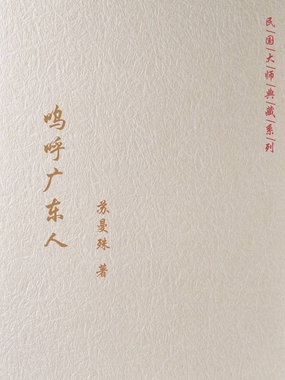 民国大师典藏系列
呜呼广东人
苏曼殊 著